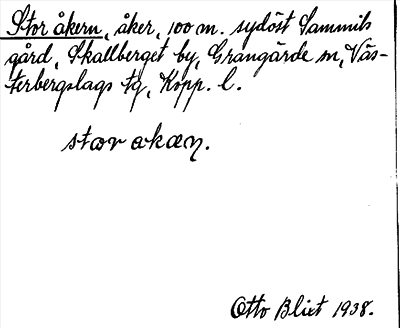 Stor åkern, åker, 100 m. sydöst Sammils
gård, Skallberget by, Grangärde sn, Väs-
terbergslags tg, Kopp. l.
Otto Blixt 1938.